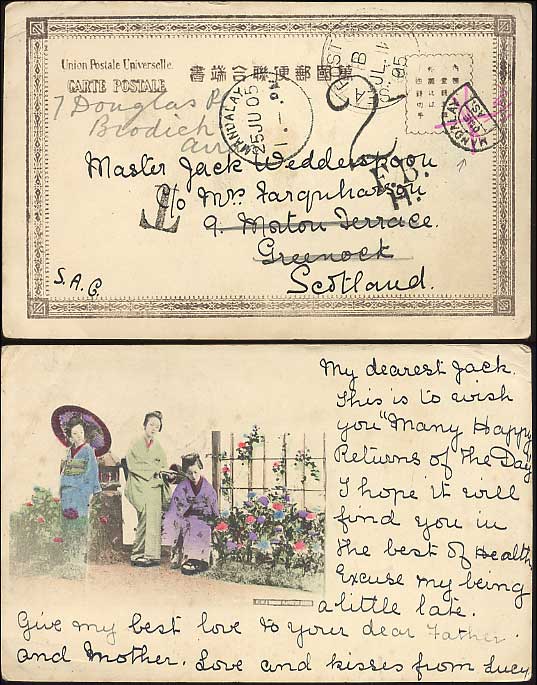 Union Postale Universelle.
CARTE POSTALE
書端合聯便郵國萬
7 Douglas
Brodick
MANDALAY
25 JU 05
JUL
05
MANDALAY
2
F.B.
H.
T
Master Jack Wedderspoon
c/o Mrs Farquharson
9. Morton Terrace.
Greenock
Scotland.
S.A.G.
My dearest Jack.
This is to wish
you "Many Happy
Returns of The Day
I hope it will
find you in
The best of Health,
Excuse my being
a little late.
Give my best love to your dear Father
and Mother. Love and kisses from Lucy.